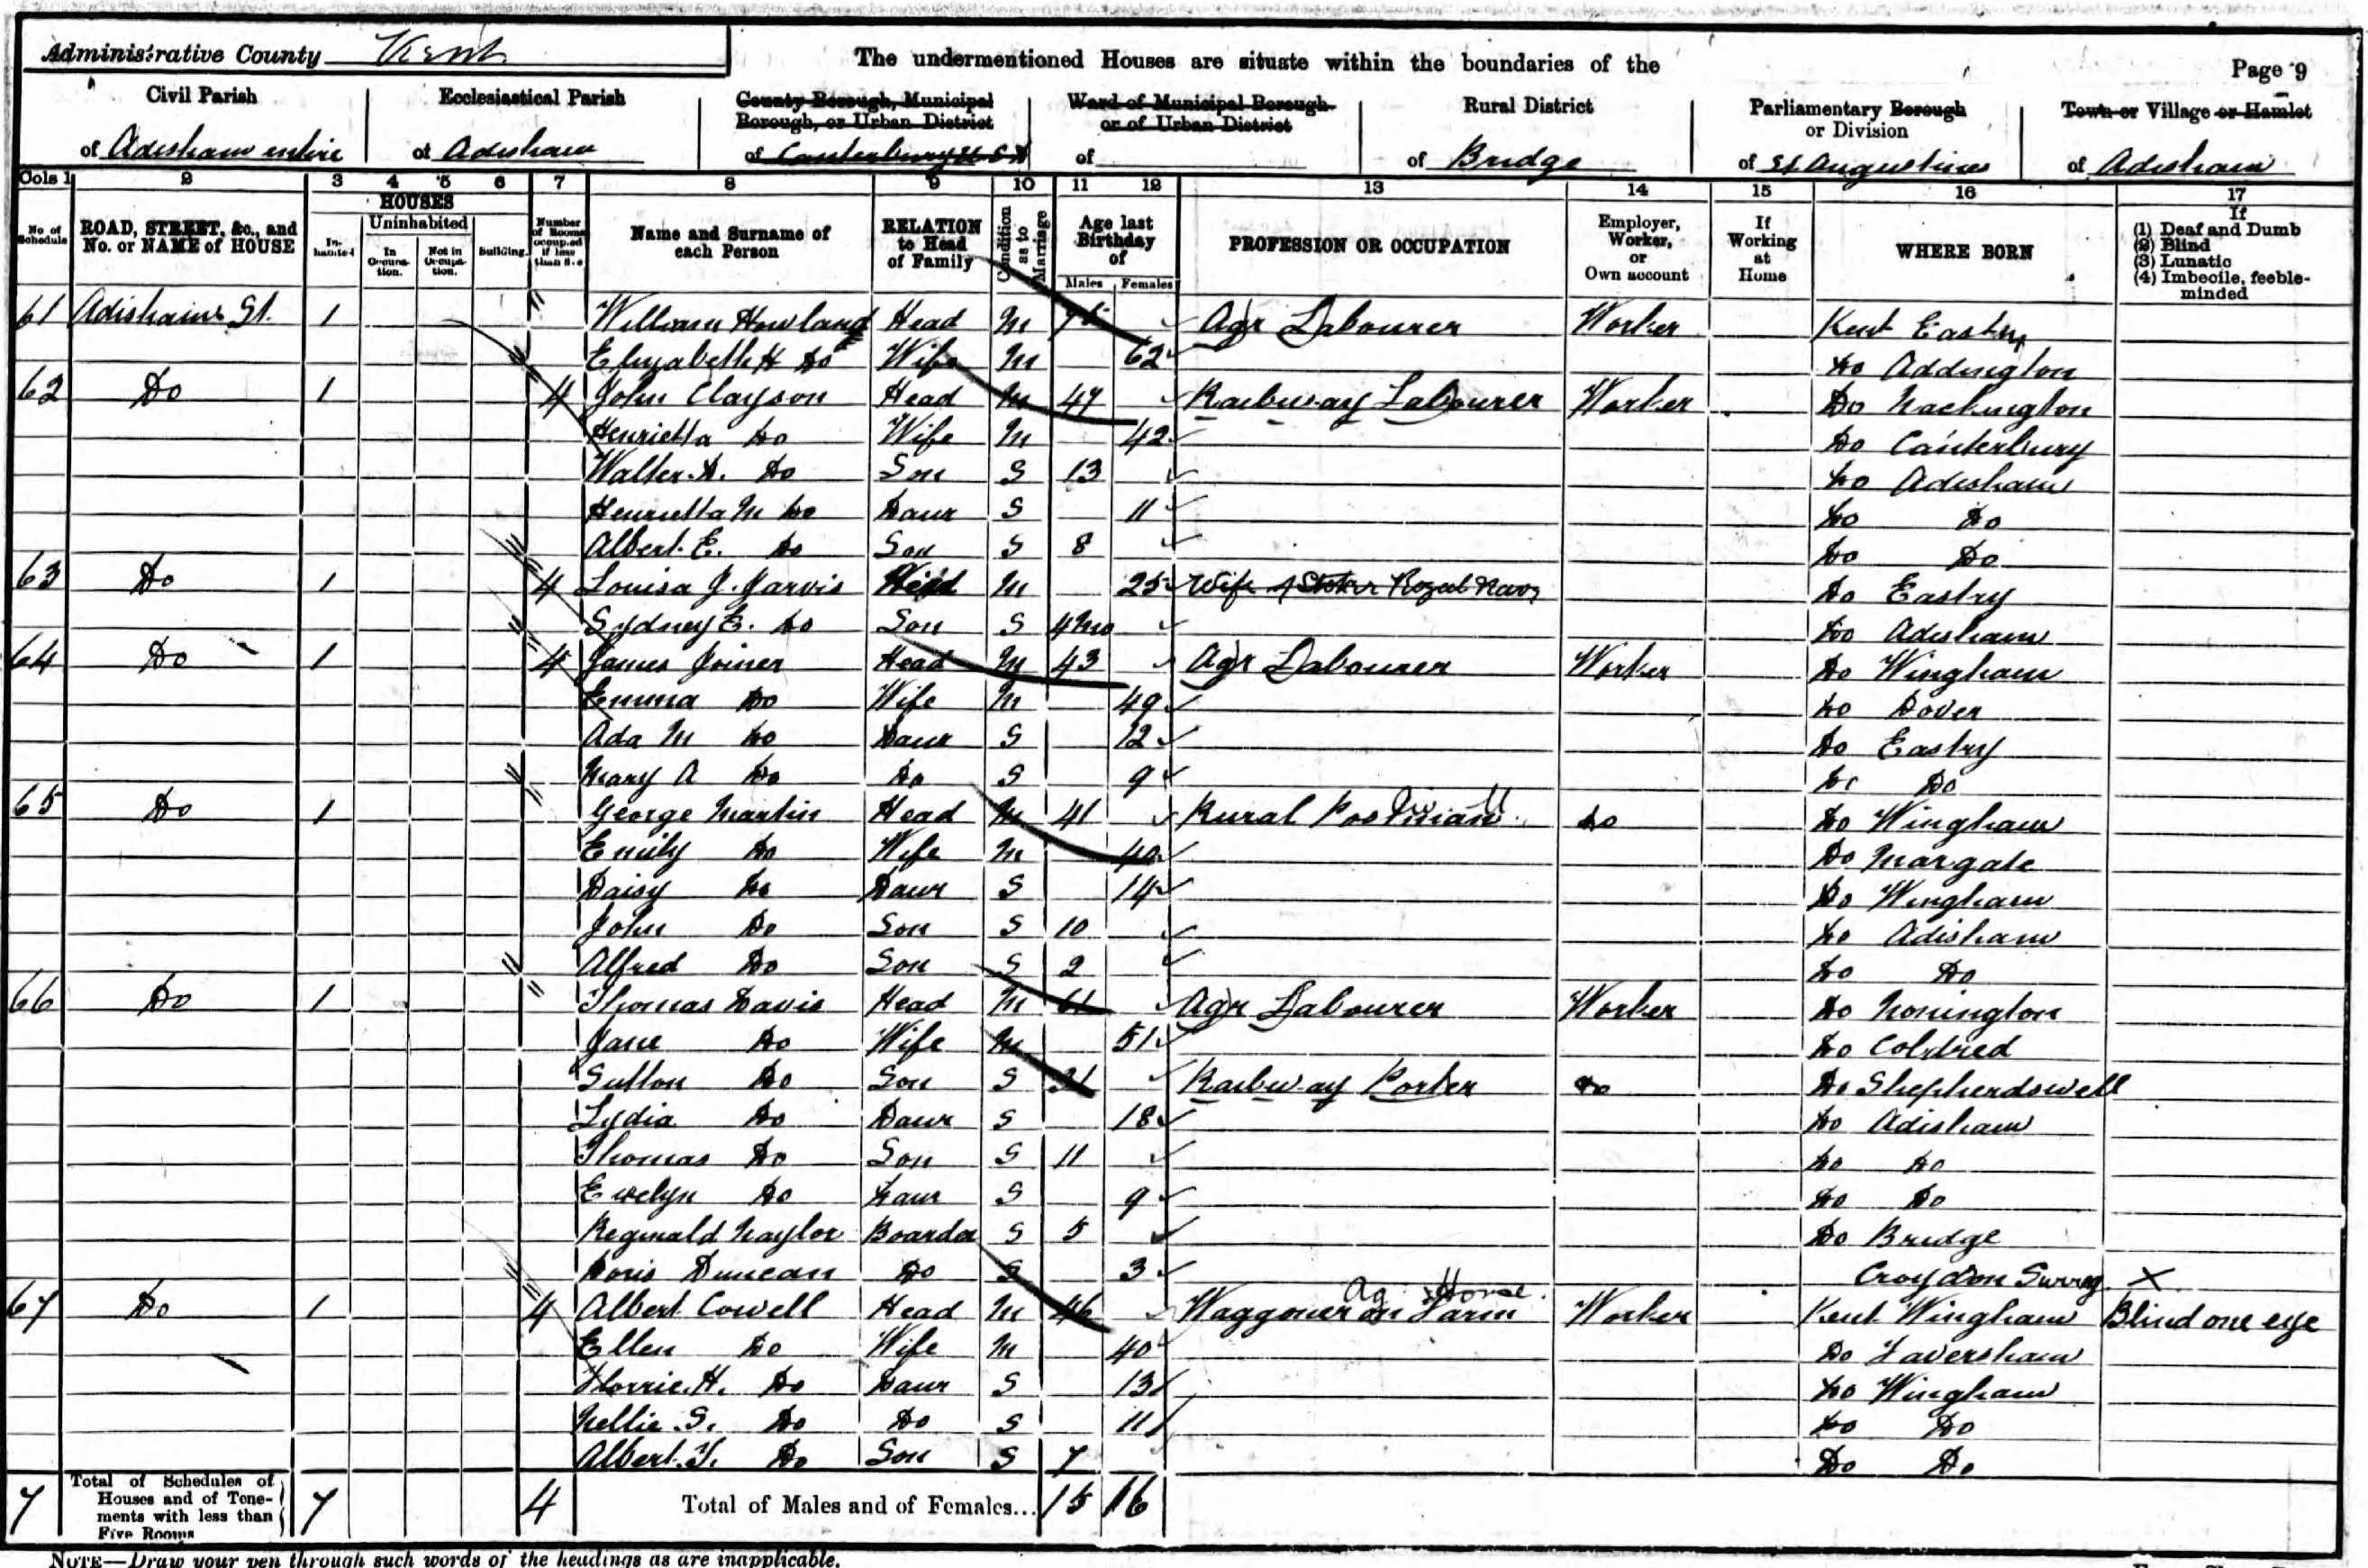 Administrative County Kent
The undermentioned Houses are situate within the boundaries of the
Page 9
Civil Parish
of Adisham entire
Ecclesiastical Parish
of Adisham
County Borough, Municipal
Borough, or Urban District
of Canterbury
Ward of Municipal Borough
or of Urban District
of
Rural District
of Bridge
Parliamentary Borough
or Division
of St Augustines
Town or Village or Hamlet
of Adisham
Cols 1 2 3 4 5 6 7 8 9 10 11 12 13 14 15 16 17
No of Schedule
ROAD, STREET, &c., and No. or NAME of HOUSE
HOUSES
In-habited
Uninhabited
In Occupa-tion.
Not in Occupa-tion.
Building.
Number of Rooms occupied if less than five
Name and Surname of each Person
RELATION to Head of Family
Condition as to Marriage
Age last Birthday of
Males Females
PROFESSION OR OCCUPATION
Employer, Worker, or Own account
If Working at Home
WHERE BORN
If
(1) Deaf and Dumb
(2) Blind
(3) Lunatic
(4) Imbecile, feeble-minded
61 Adisham St. 1 William Howland Head M 75 Agr Labourer Worker Kent Eastry
Elizabeth H Do Wife M 62 Do Addington
62 Do 1 4 John Clayson Head M 47 Railway Labourer Worker Do Nackington
Henrietta Do Wife M 42 Do Canterbury
Walter. D. Do Son S 13 Do Adisham
Henrietta M Do Daur S 11 Do Do
Albert. E. Do Son S 8 Do Do
63 Do 1 4 Louisa J. Jarvis Head M 25 Wife of Stoker Royal Navy Do Eastry
Sydney E. Do Son S 4 Mo Do Adisham
64 Do 1 4 James Joiner Head M 43 Agr Labourer Worker Do Wingham
Emma Do Wife M 49 Do Dover
Ada M Do Daur S 12 Do Eastry
Mary A Do Do S 9 Do Do
65 Do 1 George Martin Head M 41 Rural Postman Do Do Wingham
Emily Do Wife M 40 Do Margate
Daisy Do Daur S 14 Do Wingham
John Do Son S 10 Do Adisham
Alfred Do Son S 2 Do Do
66 Do 1 Thomas Davis Head M 61 Agr Labourer Worker Do Nonington
Jane Do Wife M 51 Do Coldred
Sutton Do Son S 21 Railway Porter Do Do Shepherdswell
Lydia Do Daur S 18 Do Adisham
Thomas Do Son S 11 Do Do
Evelyn Do Daur S 9 Do Do
Reginald Naylor Boarder S 5 Do Bridge
Doris Duncan Do S 3 Croydon Surrey X
67 Do 1 4 Albert Cowell Head M 46 Waggoner on Farm Ag Horse. Worker Kent Wingham Blind one eye
Ellen Do Wife M 40 Do Faversham
Florrie. H. Do Daur S 13 Do Wingham
Nellie. S. Do Do S 11 Do Do
Albert. T. Do Son S 7 Do Do
7 Total of Schedules of Houses and of Tene-ments with less than Five Rooms 7 4 Total of Males and of Females... 15 16
NOTE—Draw your pen through such words of the headings as are inapplicable.